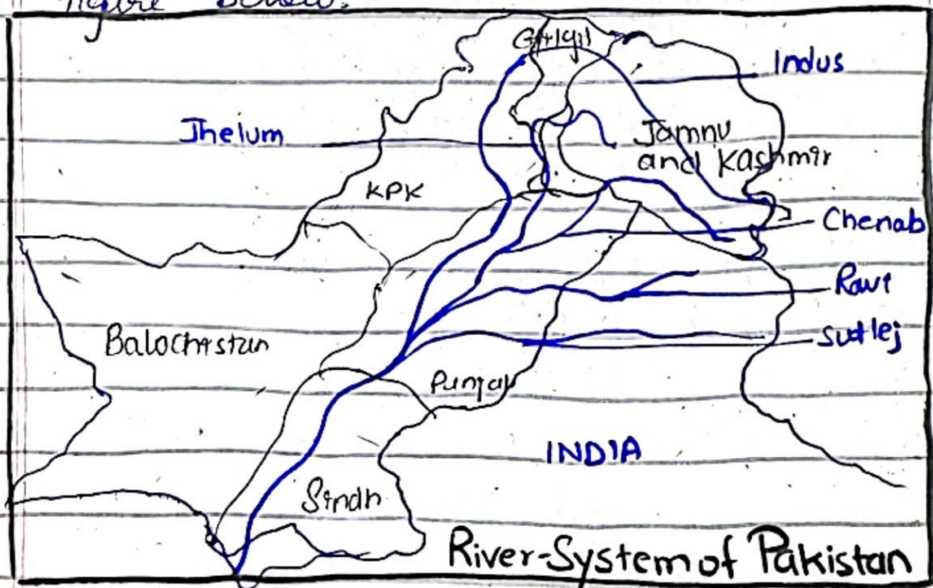 figure below.
Gilgil
Indus
Jhelum
Jammu
and Kashmir
KPK
Chenab
Ravi
Sutlej
Balochistan
Punjab
INDIA
Sindh
River-System of Pakistan